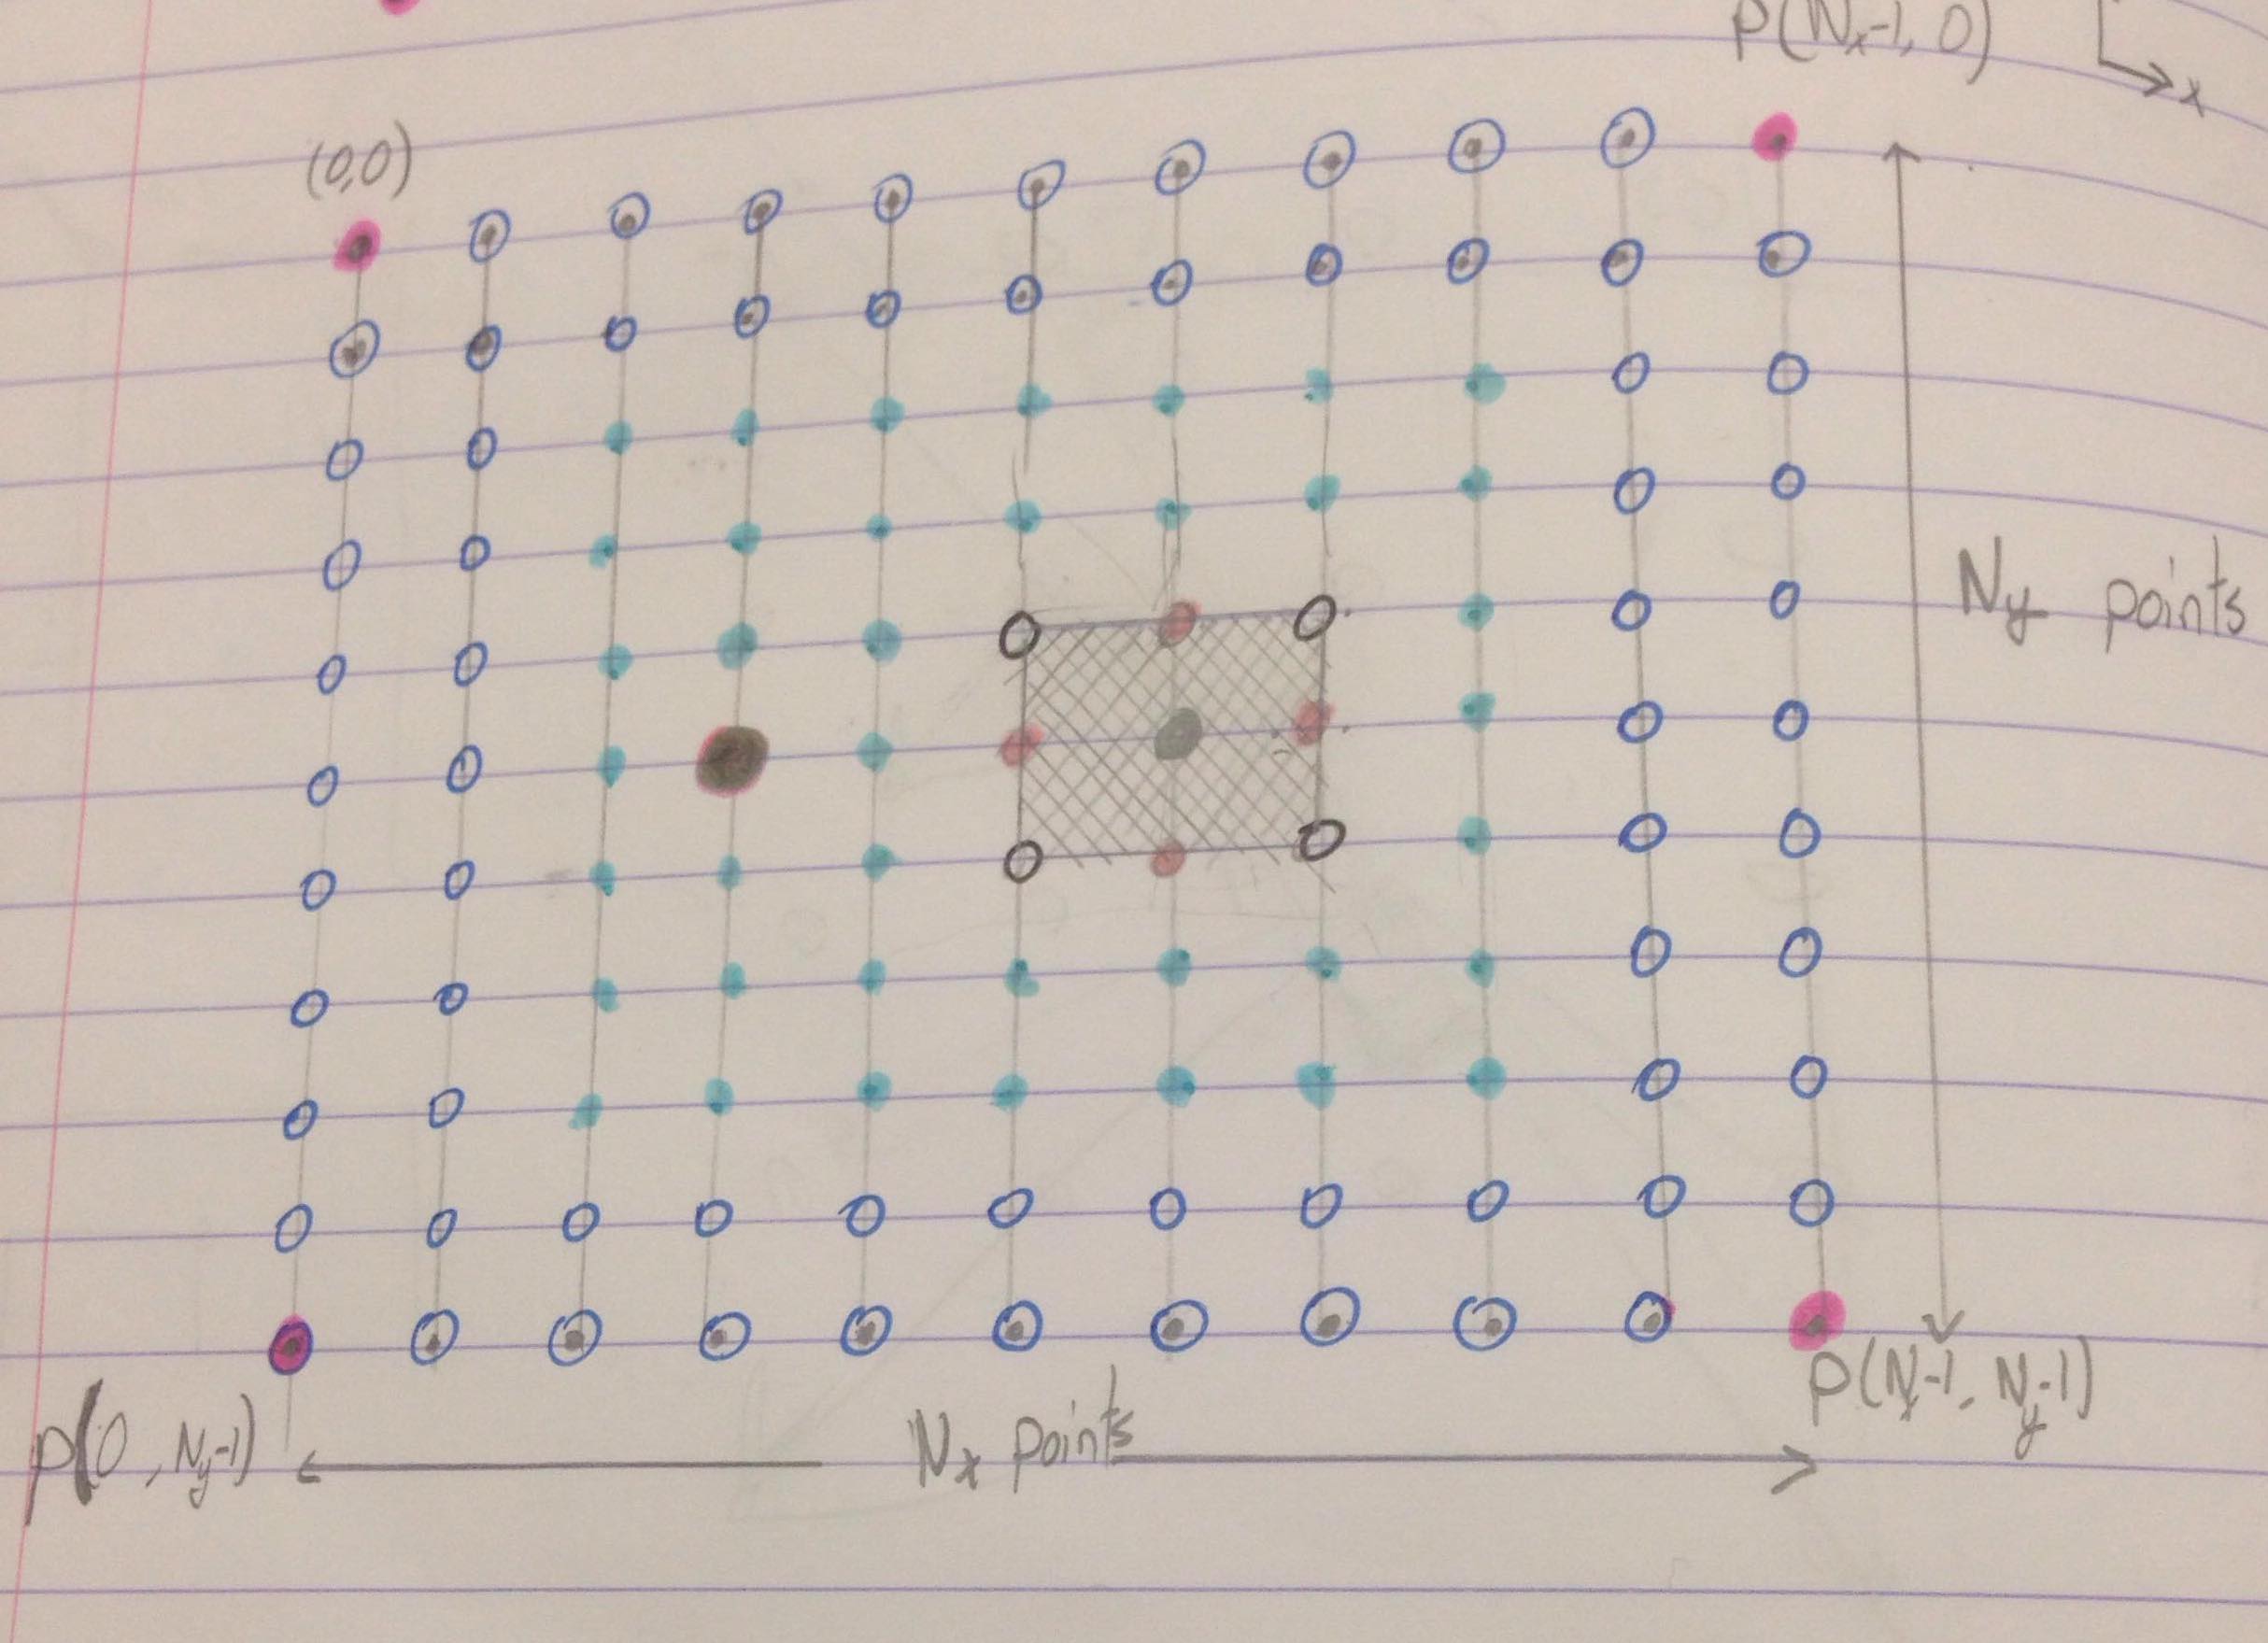 P(Nx-1, 0)
x
(0,0)
Ny points
P(Nx-1, Ny-1)
P(0, Ny-1)
Nx points